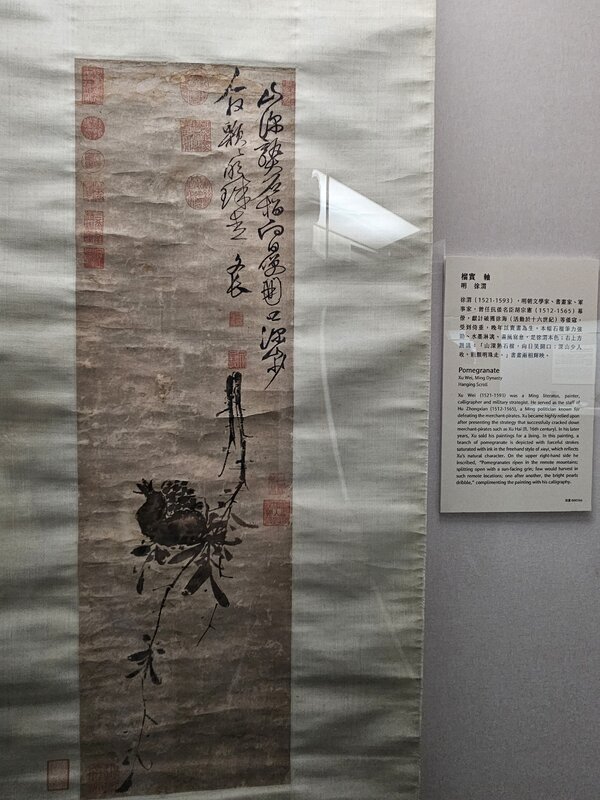 山深熟石榴向日笑開口深山少
人收顆顆明珠走 文長
榴實 軸
明 徐渭
徐渭（1521-1593），明朝文學家、書畫家、軍
事家，曾任抗倭名臣胡宗憲（1512-1565）幕
僚，獻計破獲徐海（活動於十六世紀）等倭寇，
受到倚重，晚年以賣畫為生。本幅石榴筆力強
勁、水墨淋漓，寫意，是徐渭本色；右上方
題識：「山深熟石榴，向日笑開口；深山少人
收，顆顆明珠走。」書畫兩相輝映。
Pomegranate
Xu Wei, Ming Dynasty
Hanging Scroll
Xu Wei (1521-1593) was a Ming literatus, painter,
calligrapher and military strategist. He served as the staff of
Hu Zhongxian (1512-1565), a Ming politician known for
defeating the merchant-pirates. Xu became highly relied upon
after presenting the strategy that successfully cracked down
merchant-pirates such as Xu Hai (fl. 16th century). In his later
years, Xu sold his paintings for a living. In this painting, a
branch of pomegranate is depicted with forceful strokes
saturated with ink in the freehand style of xieyi, which reflects
Xu's natural character. On the upper right-hand side he
inscribed, "Pomegranates ripen in the remote mountains;
splitting open with a sun-facing grin; few would harvest in
such remote locations; one after another, the bright pearls
dribble," complimenting the painting with his calligraphy.